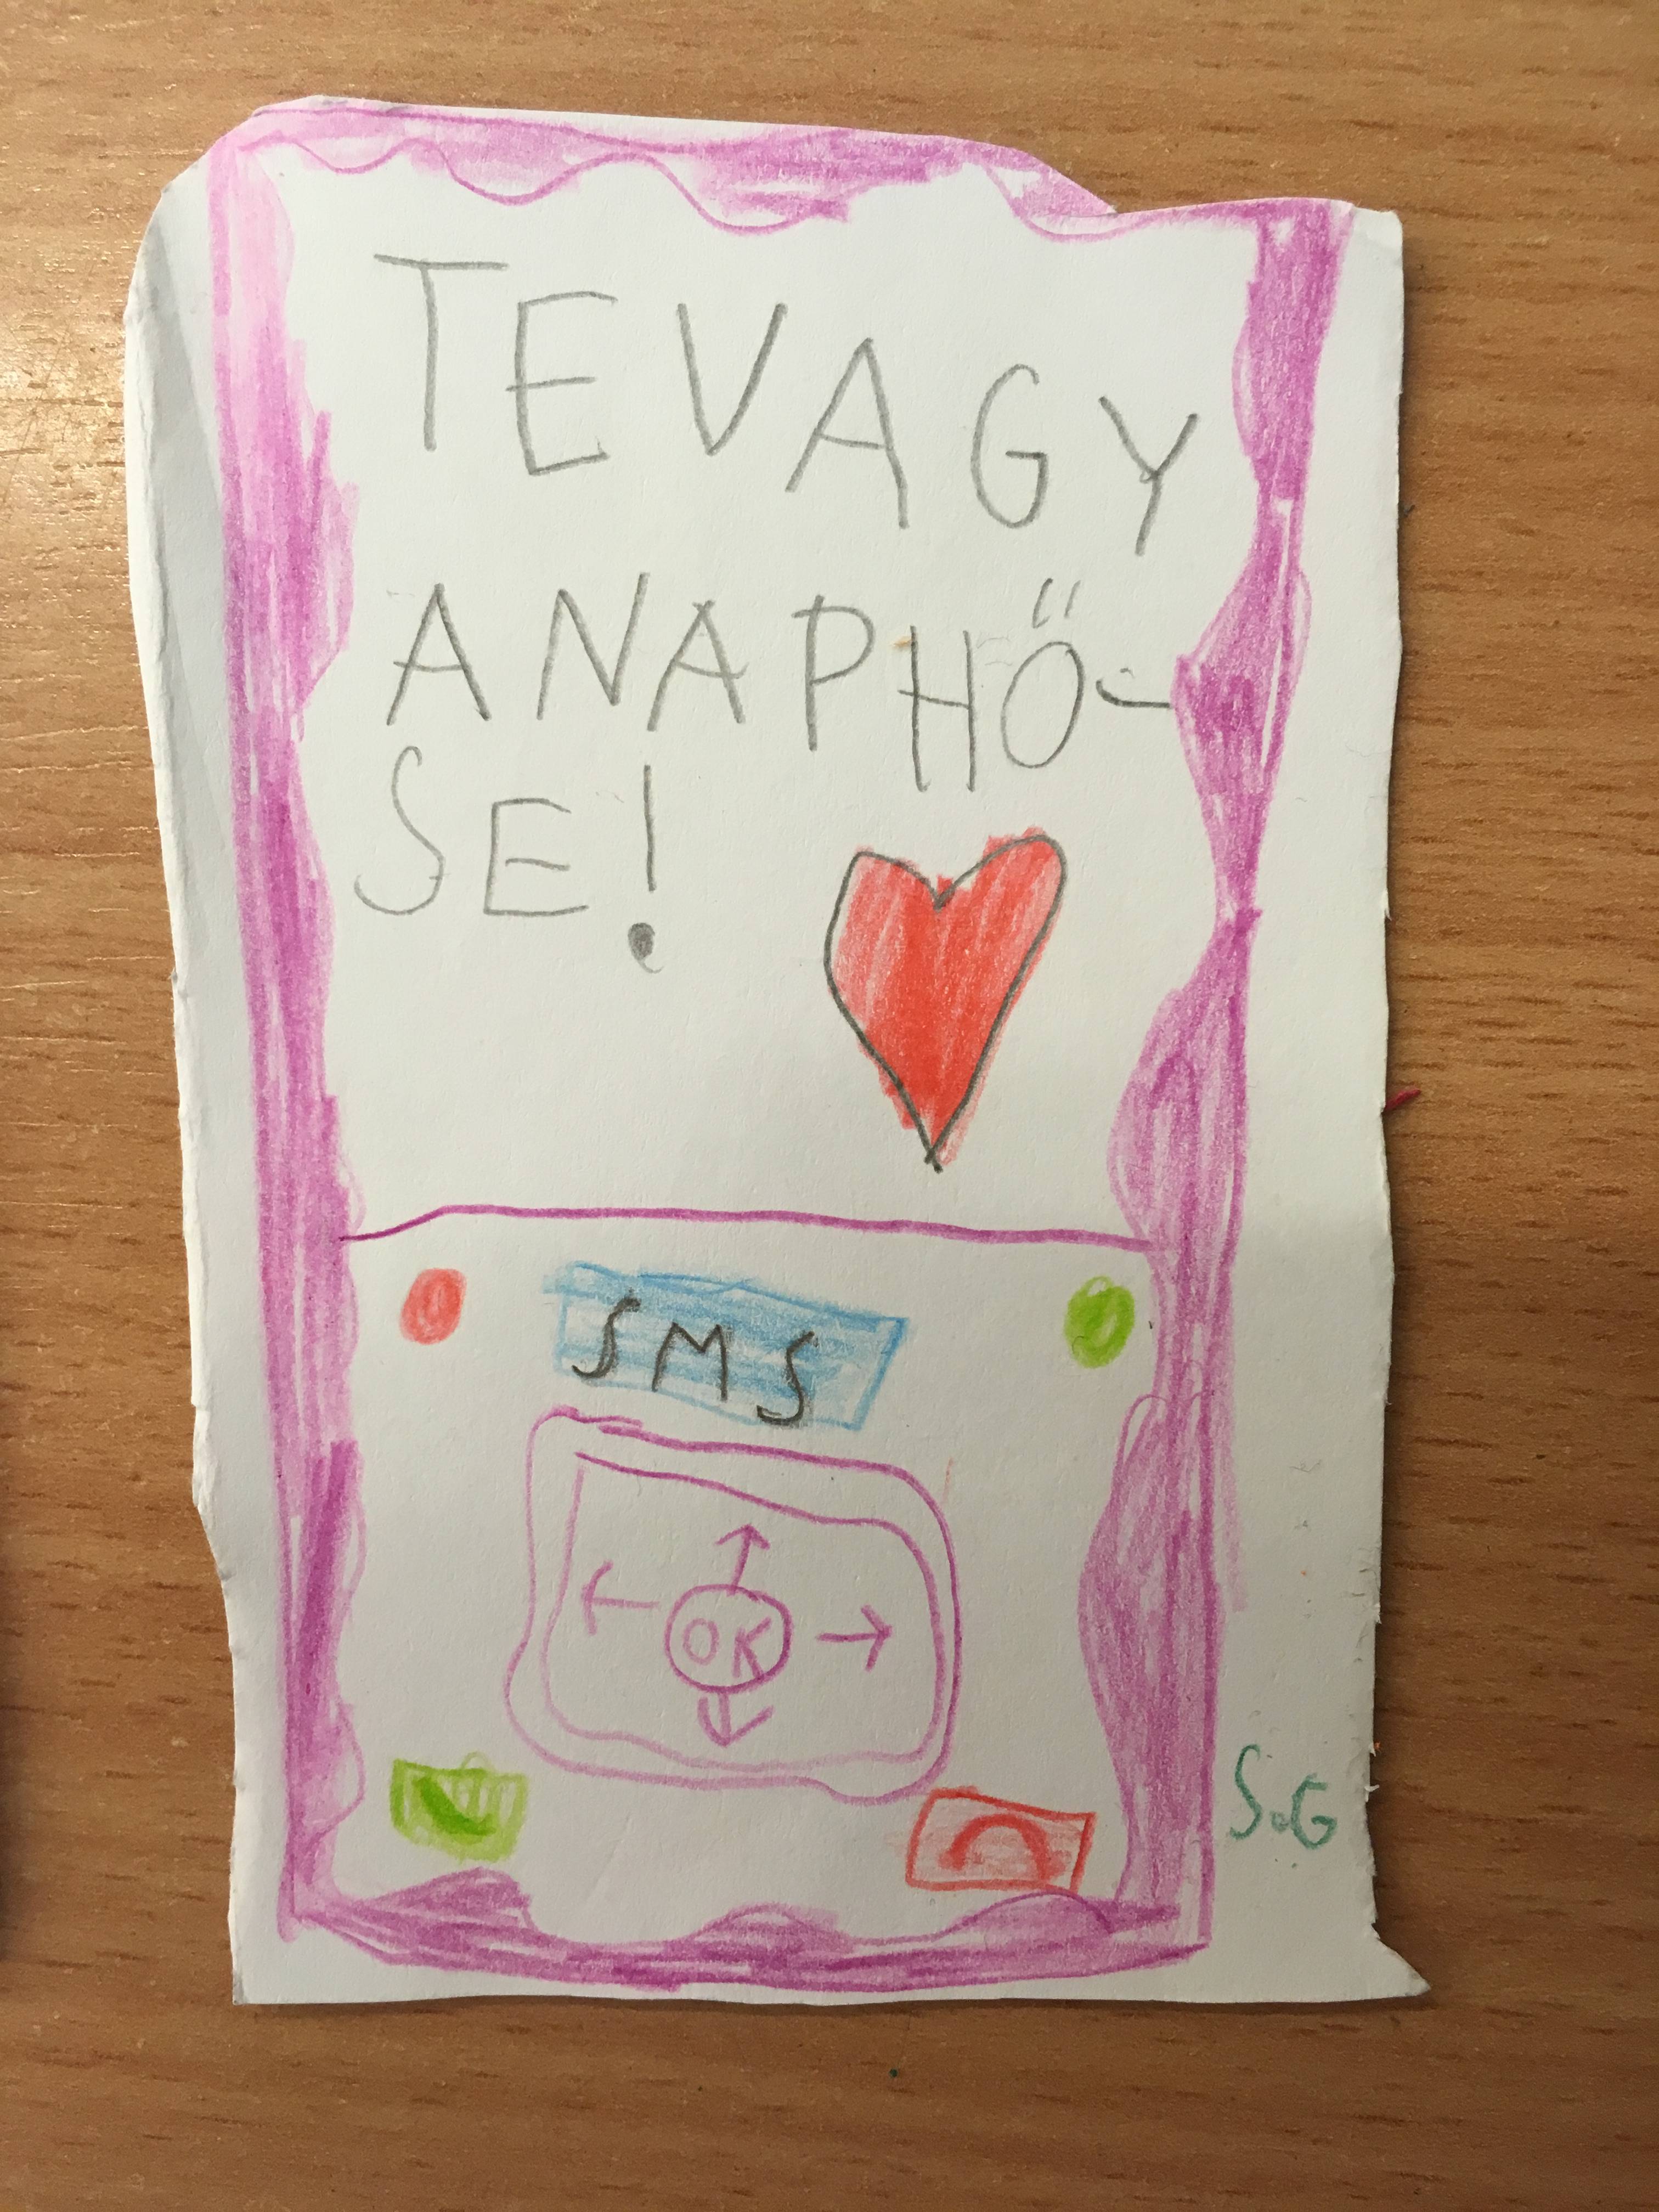 TEVAGY
ANAPHŐ-
SE!
SMS
OK
S.G